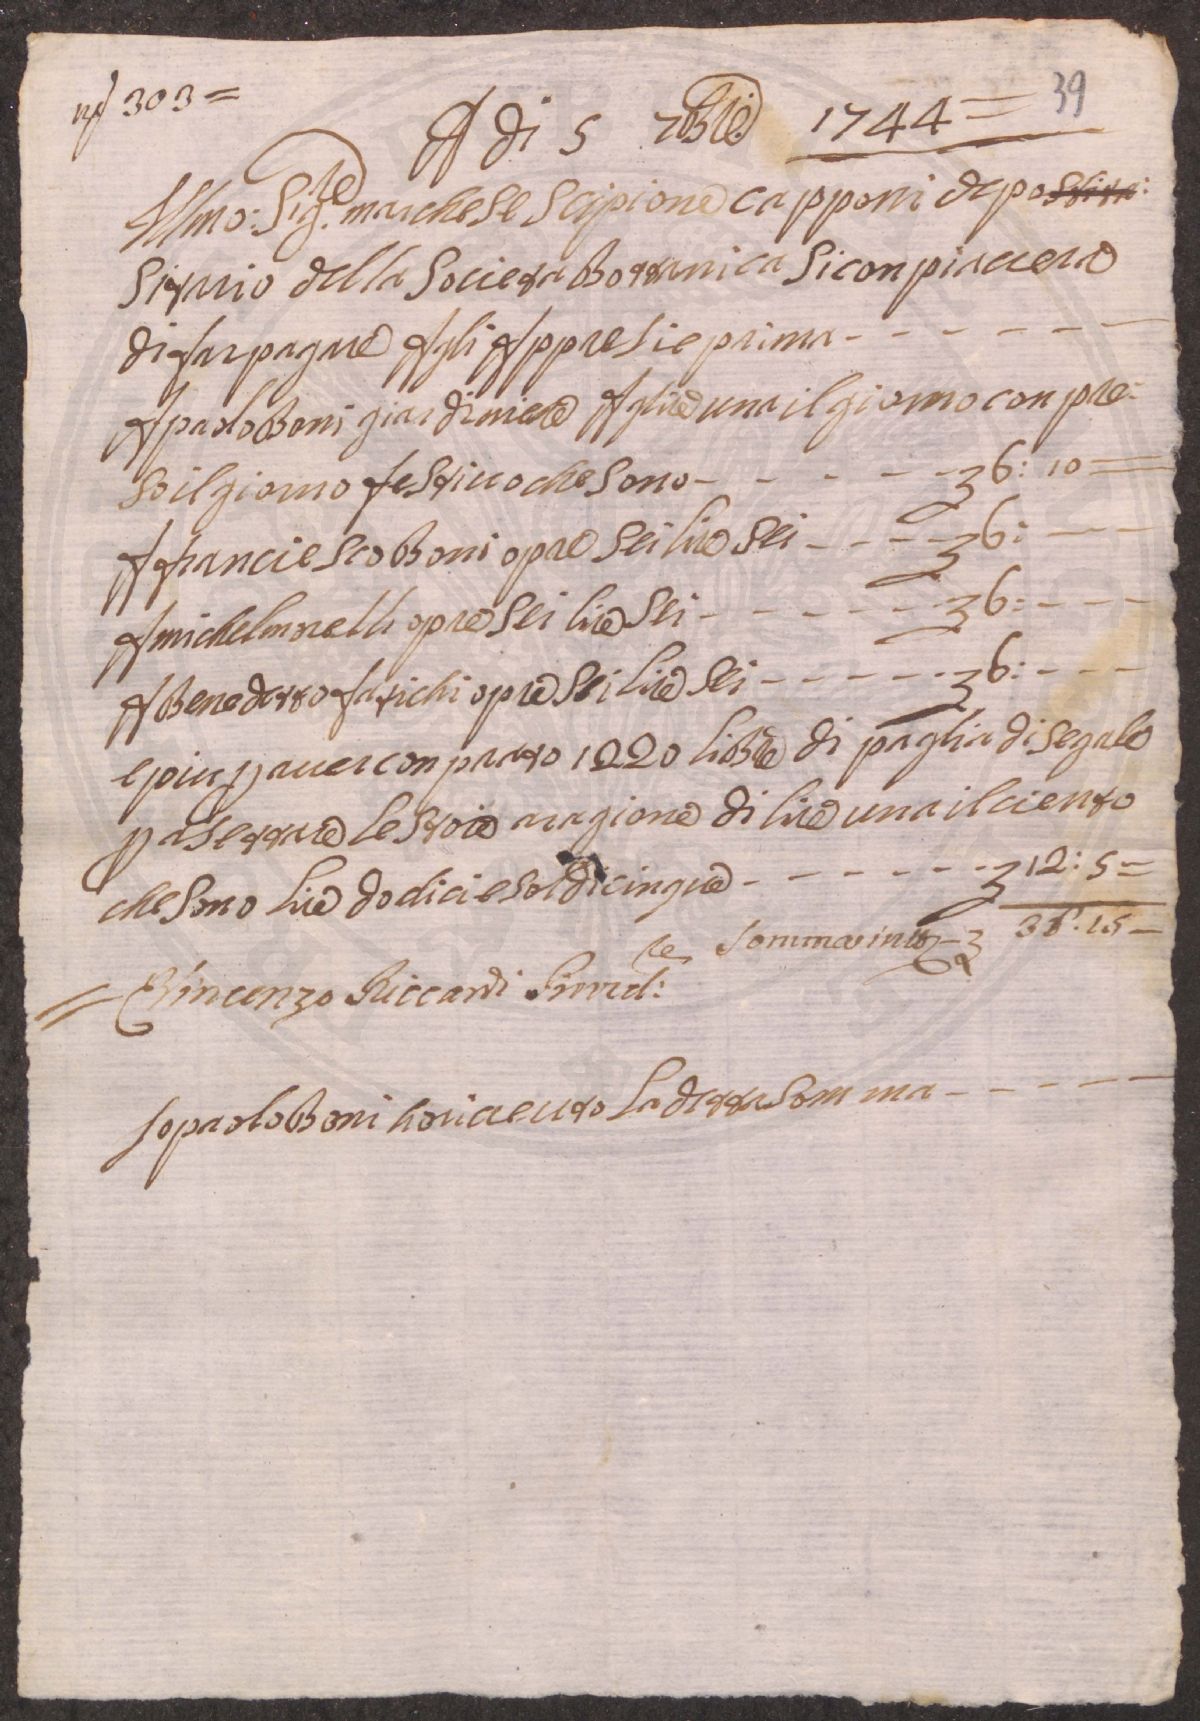 n° 303 =
39
A di 5 7bre 1744 =
Illmo: Sigre marchese Scipione Capponi depo
Sitario della Societa Bottanica Si conpiacera
di far pagare Agli Appresi e prima - - - - - -
A paolo Boni giardiniere A lire una il giorno conpre=
So il giorno festiuo che sono - - - - - £ 6: 10 =
A franciesco Boni opre Sei lire Sei - - - - £ 6: - - -
A michel opre Sei lire Sei - - - - - - £ 6: - - -
A Benedetto fatichi opre Sei lire Sei - - - - - £ 6: - - -
e piu p auer conprato 1220 libre di paglia di Segale
p asettare le Stoie a ragione di lire una il ciento
che Sono lire dodici e Soldi cinque - - - - - - £ 12: 5 =
Somma in tto £ 36: 15 -
= Vincenzo Riccardi Provvre:
Io paolo Boni ho riceuto la detta Somma - - - - -